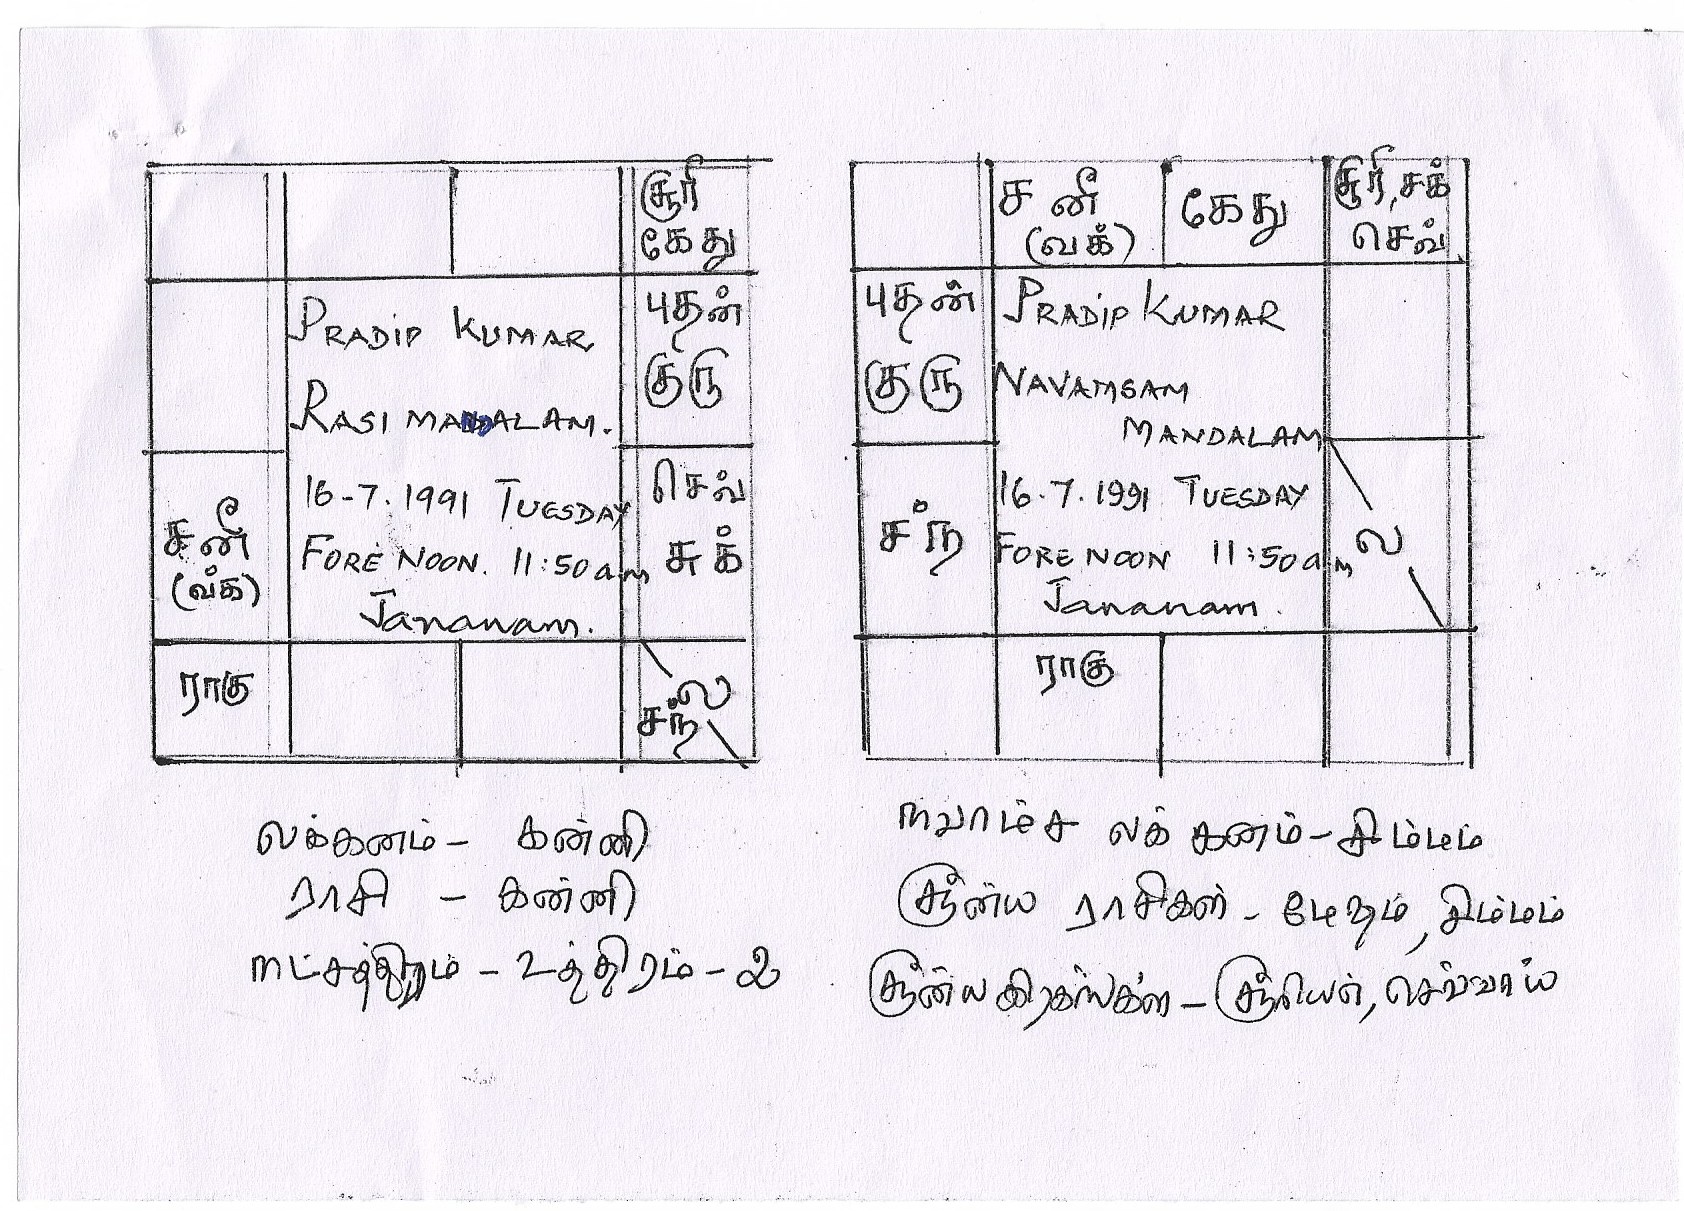 சூரி
கேது
புதன்
குரு
PRADIP KUMAR
RASI MANDALAM.
16-7.1991 TUESDAY
FORE NOON. 11:50 a.m
Jananam.
செவ்
சுக்
சனீ
(வக்)
ராகு
ல
சந்
லக்கனம் - கன்னி
ராசி - கன்னி
நட்சத்திரம் - உத்திரம் - 2
சனீ
(வக்)
கேது
சூரி, சுக்
செவ்
புதன்
குரு
PRADIP KUMAR
NAVAMSAM
MANDALAM
16.7.1991 TUESDAY
FORE NOON 11:50 a.m
Jananam.
சந்
ல
ராகு
நவாம்ச லக்கனம் - சிம்மம்
சூன்ய ராசிகள் - மேஷம், சிம்மம்
சூன்ய கிரகங்கள் - சூரியன், செவ்வாய்